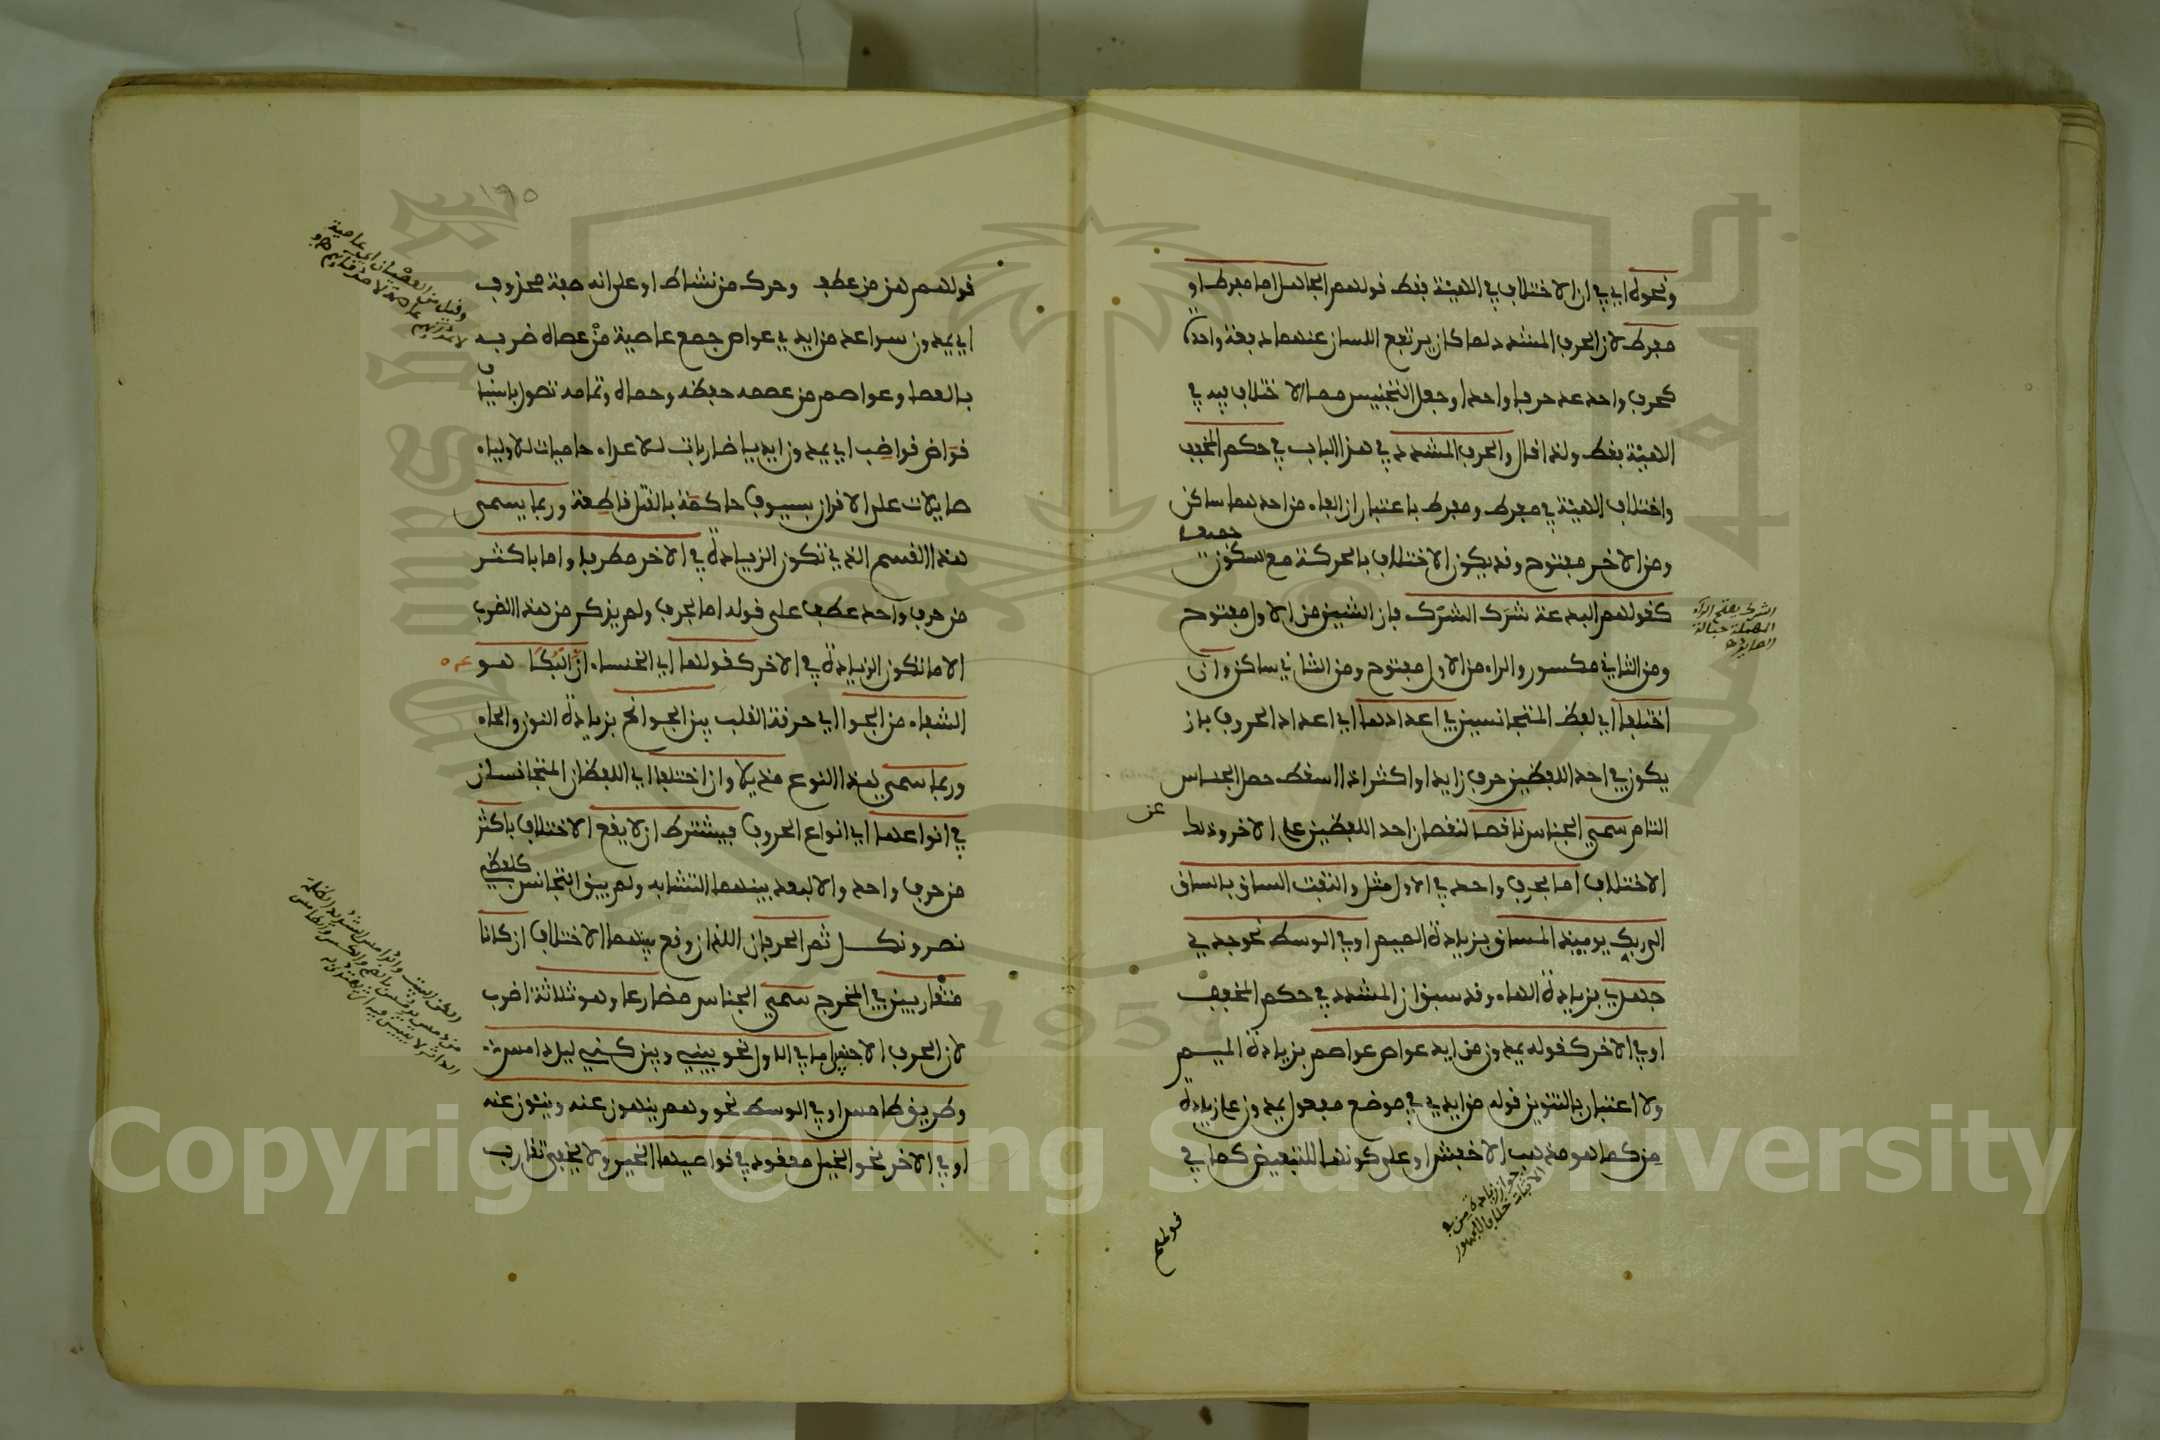 ونحوه اي في ان الاختلاف في الهيئة فقط قولهم الجاهل اما مفرط او
مفرط لان الحرف المشدد لما كان يرتفع اللسان عنهما دفعة واحدة
كحرف واحد عد حرفا واحدا وجعل التجنيس مما الاختلاف فيه في
الهيئة فقط ولذا قال والحرف المشدد في هذا الباب في حكم المخفف
واختلاف الهيئة في مفرط ومفرط باعتبار ان الفاء من احدهما ساكن
ومن الاخر مفتوح وقد يكون الاختلاف بالحركة مع السكون
جميعا
كقولهم البدعة شرك الشرك فان الشين من الاول مفتوح
الشرك بفتح الراء
المهملة حبالة
الصايد
ومن الثاني مكسور والراء من الاول مفتوح ومن الثاني ساكن وان
اختلفا اي لفظ المتجانسين في اعدادهما اي اعداد الحروف بان
يكون في احد اللفظين حرف زايد او اكثر اذا اسقط حصل الجناس
التام سمي الجناس ناقصا لنقصان احد اللفظين عن الاخر وذلك
عن
الاختلاف اما بحرف واحد في الاول مثل والتفت الساق بالساق
الى ربك يوميذ المساق بزيادة الميم او في الوسط نحو جدي
جهدي بزيادة الهاء وقد سبق ان المشدد في حكم المخفف
او في الاخر كقوله يمدون من ايد عواص عواصم بزيادة الميم
ولا اعتبار بالتنوين قوله من ايد في موضع مفعول يمدون على زيادة
من كما هو مذهب الاخفش او على كونها للتبعيض كما في
جواز زيادة من في
الاثبات خلافا للجمهور
قولهم
١٩٥
قولهم هز من عطفه وحرك من نشاط او على انه صفة محذوف
اي يمدون سواعد من ايد عواص جمع عاصية من عصاه ضربه
بالعصا وعواصم من عصمه حفظه وحماه وتمامه تصول باسياف
قواض قواضب اي يمدون ايديا ضاربات للاعداء حاميات للاولياء
صايلات على الاقران بسيوف حاكمة بالقتل قاطعة وربما يسمى
هذا القسم الذي تكون الزيادة في الاخر مطرفا واما باكثر
من حرف واحد عطف على قوله اما بحرف ولم يذكر من هذا الضرب
الا ما تكون الزيادة في الاخر كقولها اي الخنساء ان البكا هو
الشفاء من الجوا اي حرقة القلب بين الجوانح بزيادة النون والحاء
وربما سمي هذا النوع مذيلا وان اختلفا اي اللفظان المتجانسان
في انواعها اي انواع الحروف فيشترط ان لا يقع الاختلاف باكثر
من حرف واحد والا لبعد بينهما التشابه ولم يبق التجانس كلفظي
نصر ونكل ثم الحرفان اللذان وقع بينهما الاختلاف ان كانا
متقاربين في المخرج سمي الجناس مضارعا وهو ثلاثة اضرب
لان الحرف الاجنبي اما في الاول نحو بيني وبين كني ليل دامس
وطريق طامس او في الوسط نحو وهم ينهون عنه وينئون عنه
او في الاخر نحو الخيل معقود في نواصيها الخير ولا يخفى تقارب
Copyright © King Saud University
1957